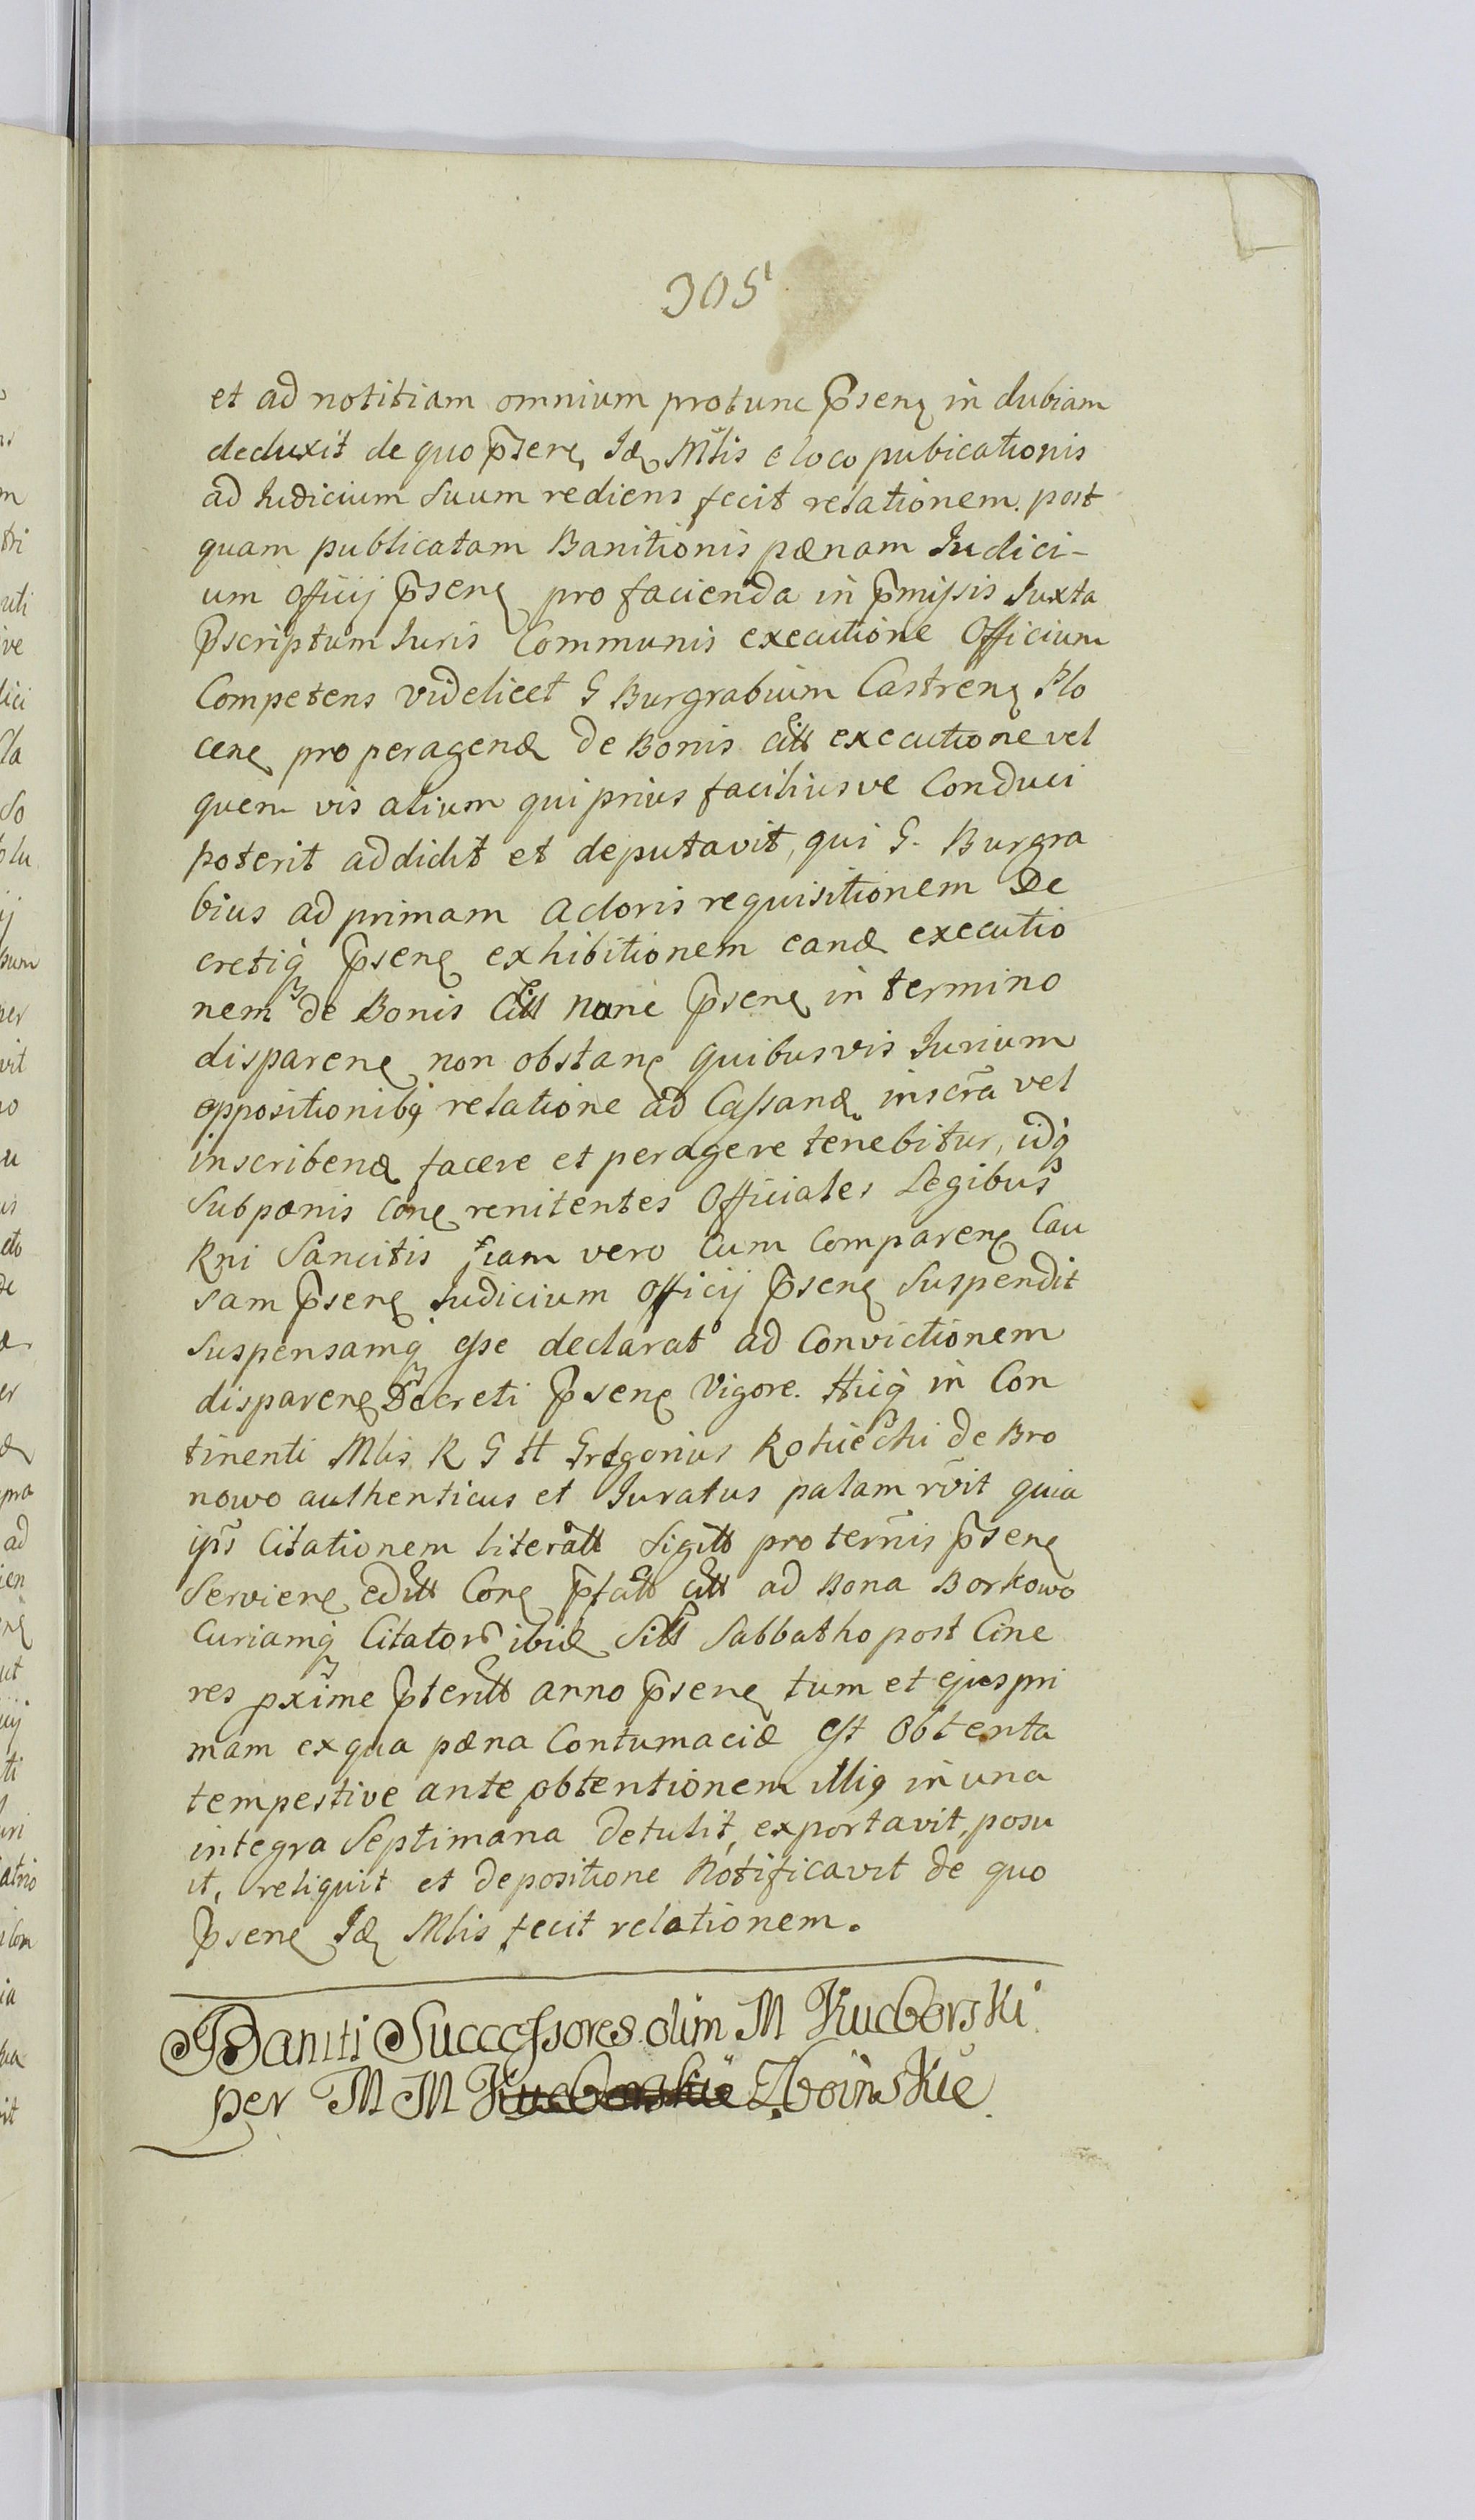 305
et ad notitiam omnium protunc p̄senꝭ in dubiam
deduxit de quo p̄senꝭ Idꝭ Mlis e loco pubicationis
ad Iudicium Suum rediens fecit relationem. post
quam publicatam Banitionis pænam Iudici-
um officij p̄senꝭ pro facienda in p̄missis Iuxta
p̄scriptum Iuris Communis executione Officium
Competens videlicet G Burgrabium Castrenꝭ Plo
cenꝭ pro peragenꝺ de Bonis citt executione vel
quem vis alium qui prius faciliusve Conduci
poterit addidit et deputavit, qui G. Burgra
bius ad primam actoris requisitionem De
cretiqꝫ p̄senꝭ exhibitionem eanꝺ executio
nem de Bonis Citt nunc p̄senꝭ in termino
disparenꝭ non obstanꝭ quibusvis Iurium
oppositionibꝫ relatione ad Cassanꝺ inscrā vel
inscribenꝺ facere et peragere tenebitur, idqꝫ
Subpænis Conꝭ renitentes Officiales Legibus
Rni Sancitis iam vero Cum Comparenꝭ Cau
sam p̄senꝭ Iudicium Officij p̄senꝭ Suspendit
Suspensamqꝫ esse declarat ad Convictionem
disparenꝭ Decreti p̄senꝭ Vigore. Hicqꝫ in Con
tinenti Mlis R G H Gregorius Rościechi de Bro
nowo authenticus et Iuratus palam rōvit quia
ips̄ Citationem literatt Sigitt pro ternīs p̄senꝭ
Servienꝭ editt Conꝭ p̄fatt citt ad Bona Borkowo
Curiamqꝫ Citator̄ ibiꝺ Sitt Sabbatho post Cine
res pxime p̄teritt anno p̄senꝭ tum et ejus pri
mam ex qua pæna Contumaciæ est Obtenta
tempestive ante obtentionem illiꝰ in una
integra Septimana detulit, exportavit, posu
it, reliquit et depositione Notificavit de quo
p̄senꝭ Idꝭ Mlis fecit relationem.
Baniti Successores olim M Kucborski
per M M Zboinskie